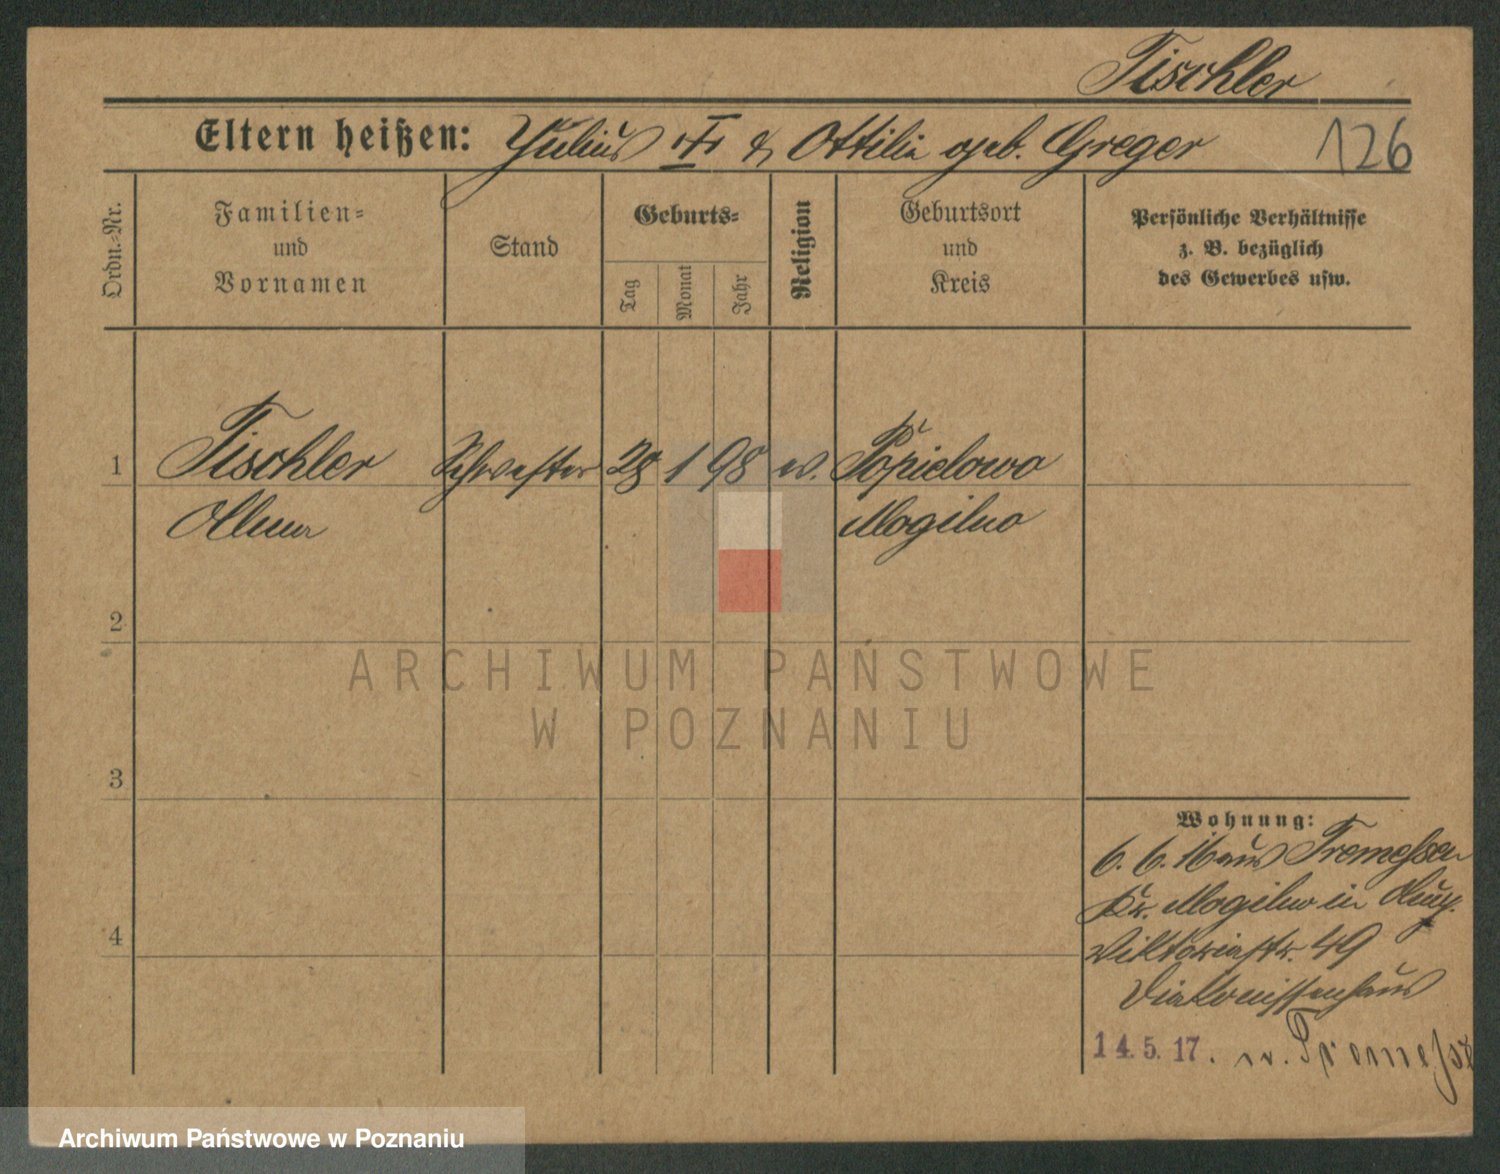 Tischler
Eltern heißen: Julius & Ottilia geb. Greger
126
Ordn.-Nr.
Familien-
und
Vornamen
Stand
Geburts-
Tag
Monat
Jahr
Religion
Geburtsort
und
Kreis
Persönliche Verhältnisse
z. B. bezüglich
des Gewerbes usw.
1 Tischler Schwester 28 1 98 ev. Popielowo
Mogilno
2
ARCHIWUM PAŃSTWOWE
W POZNANIU
3
Wohnung:
6. 6. 16 aus Tremessen
Kr. Mogilno in
4
Viktoriastr. 49
Diakonissenhaus
14.5.17. n. Tremesse
Archiwum Państwowe w Poznaniu